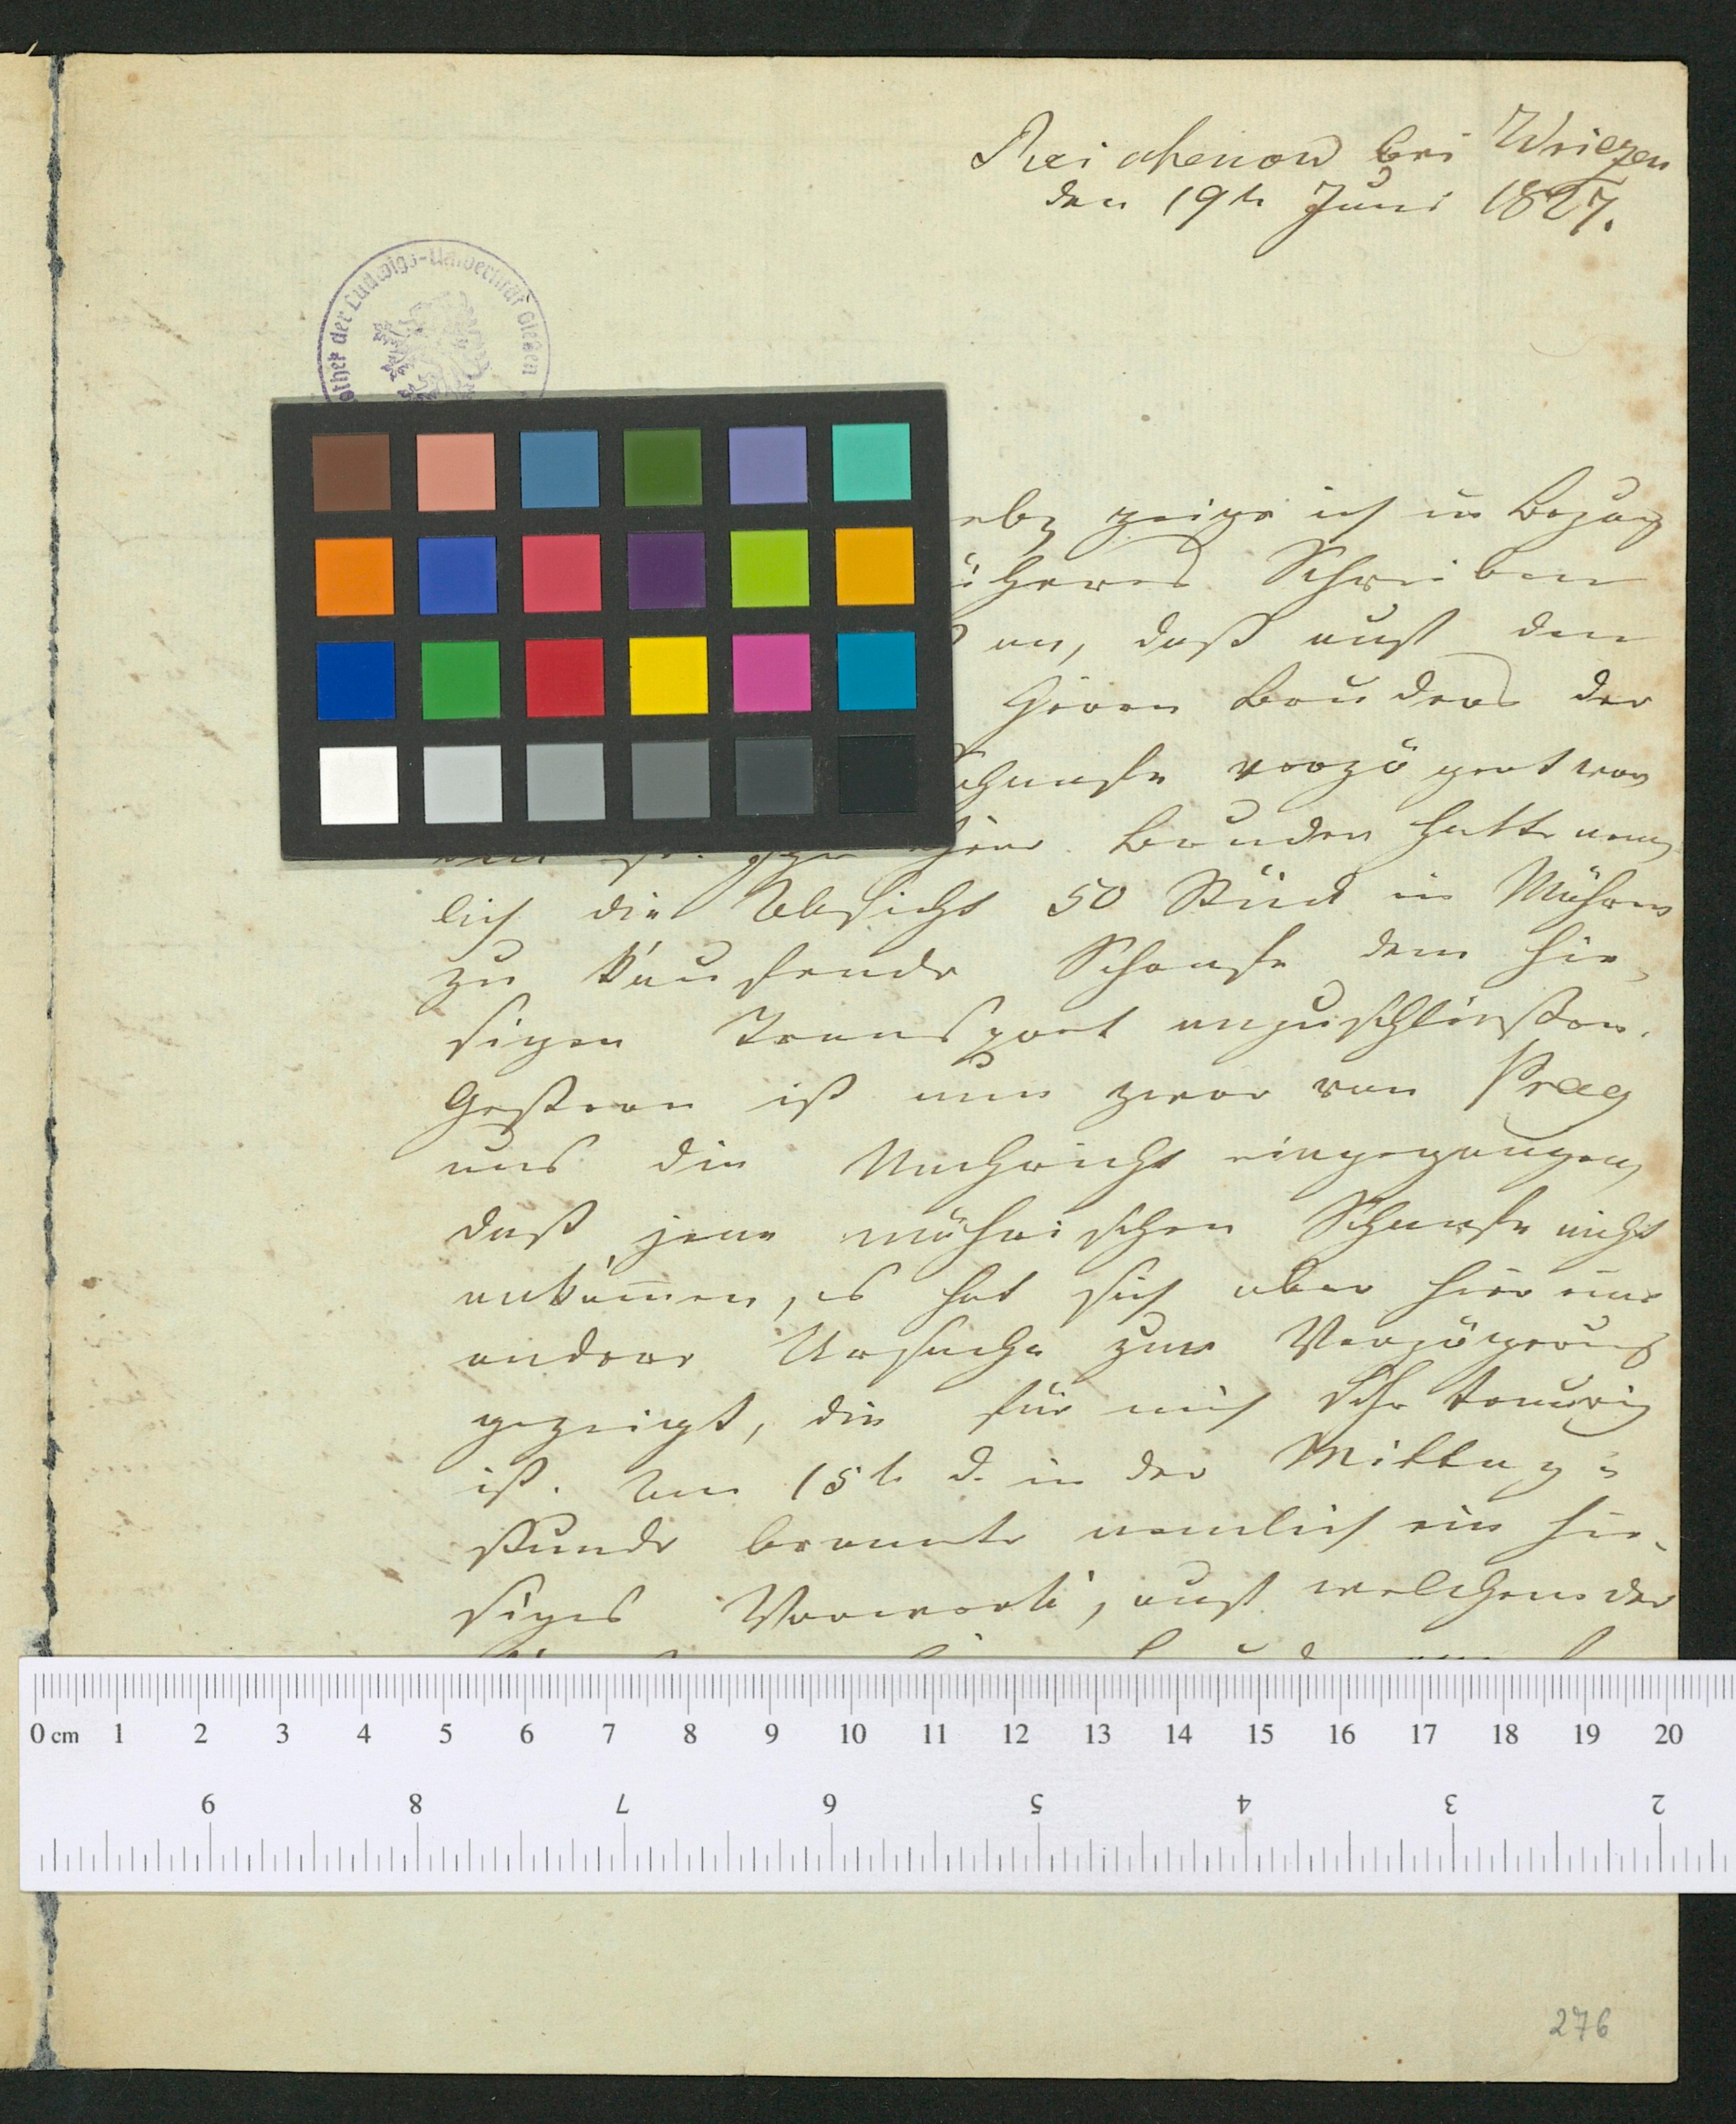 Reichenow bei Wriezen
den 19t. Juni 1827.
othek der Ludwigs-Universität Gießen
zeige ich in Bezug
üheres Schreiben
an, daß auf den
Herrn Bruders der
Schaafe verzögert wor
Herr Bruder hatte nem
lich die Absicht 50 Stück in Mähren
zu kaufende Schaafe dem hie-
sigen Transport anzuschließen.
Gestern ist nun zwar von Prag
aus die Nachricht eingegangen,
daß jene mährischen Schaafe nicht
ankommen, es hat sich aber hier eine
andere Ursache zur Verzögerung
gezeigt, die für mich sehr traurig
ist. Am 15t. d. in der Mittag=
stunde brannte nemlich ein hie-
siges Vorwerk, auf welchem der
0 cm 1 2 3 4 5 6 7 8 9 10 11 12 13 14 15 16 17 18 19 20
9 8 7 6 5 4 3 2
276